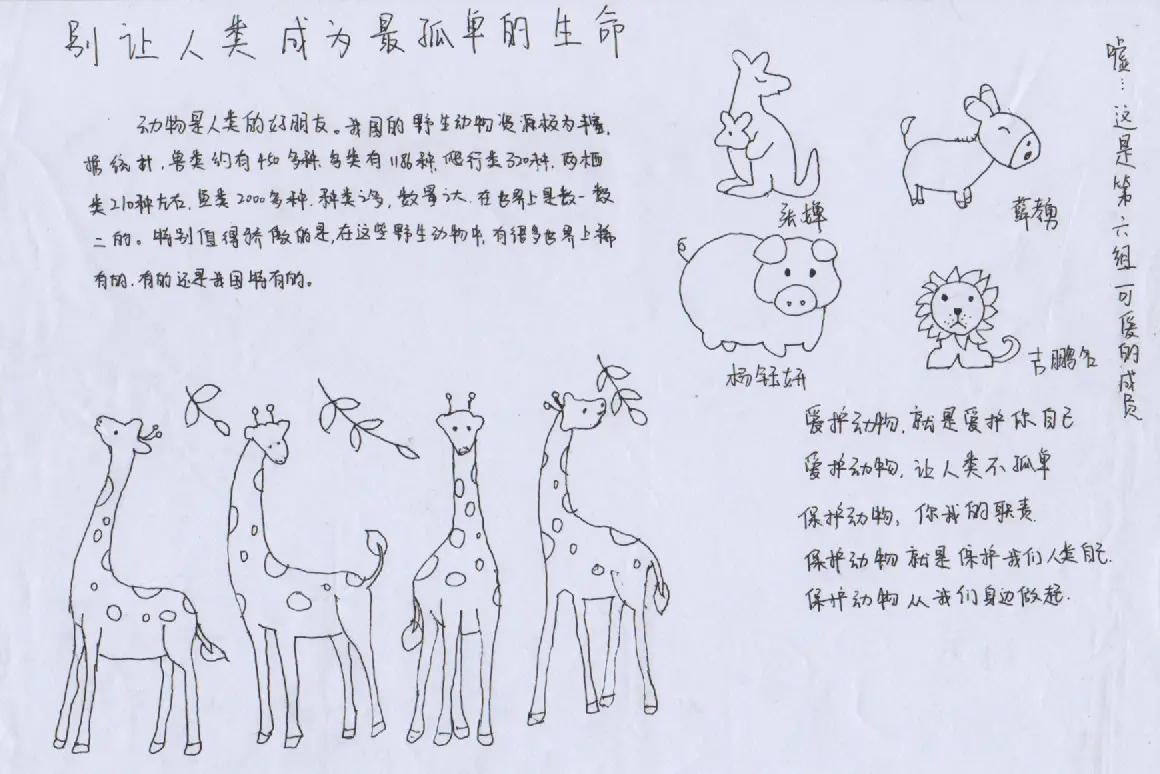 别让人类成为最孤单的生命
动物是人类的好朋友。我国的野生动物资源极为丰富,
据统计,兽类约有450多种,鸟类有1186种,爬行类320种,两栖
类210种左右,鱼类2000多种,种类之多,数量之大,在世界上是数一数
二的。特别值得骄傲的是,在这些野生动物中,有很多世界上稀
有的,有的还是我国特有的。
张婵
薛勇
杨钰妍
古鹏名
嘘…这是第六组可爱的成员
爱护动物,就是爱护你自己
爱护动物,让人类不孤单
保护动物,你我的职责.
保护动物 就是保护我们人类自己.
保护动物 从我们身边做起.